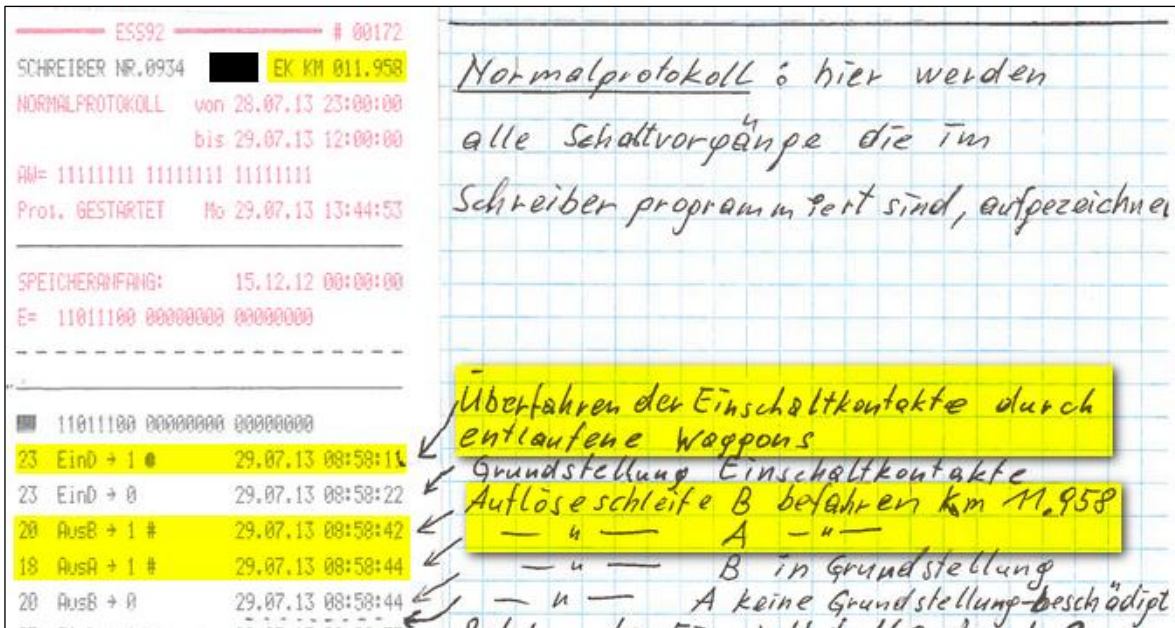 ESS92 # 00172
SCHREIBER NR.0934 EK KM 011.958
NORMALPROTOKOLL von 28.07.13 23:00:00
bis 29.07.13 12:00:00
AW= 11111111 11111111 11111111
Prot. GESTARTET Mo 29.07.13 13:44:53
SPEICHERANFANG: 15.12.12 00:00:00
E= 11011100 00000000 00000000
11011100 00000000 00000000
23 EinD → 1 29.07.13 08:58:11
23 EinD → 0 29.07.13 08:58:22
20 AusB → 1 # 29.07.13 08:58:42
18 AusA → 1 # 29.07.13 08:58:44
20 AusB → 0 29.07.13 08:58:44
Normalprotokoll : hier werden
alle Schaltvorgänge die im
Schreiber programmiert sind, aufgezeichnet
Überfahren der Einschaltkontakte durch
entlaufene Waggons
Grundstellung Einschaltkontakte
Auflöseschleife B befahren km 11,958
— " — A — " —
— " — B in Grundstellung
— " — A keine Grundstellung-beschädigt